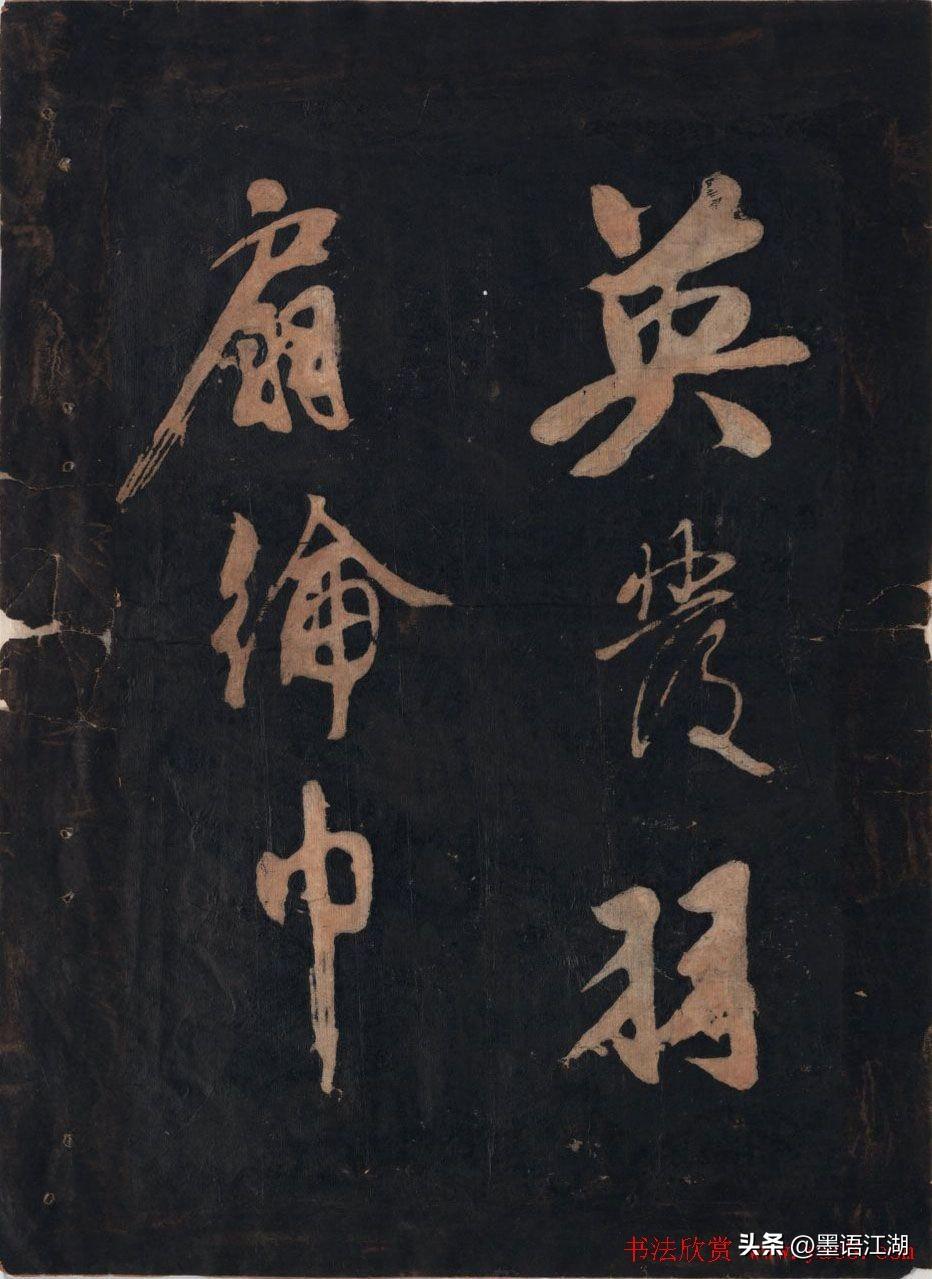 英發羽
扇綸巾
书法欣赏
头条 @墨语江湖